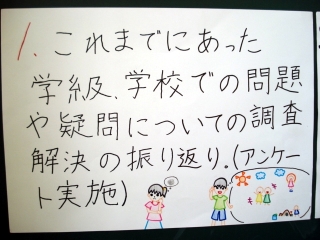 1. これまでにあった
学級、学校での問題
や疑問についての調査
解決の振り返り.(アンケー
ト実施)